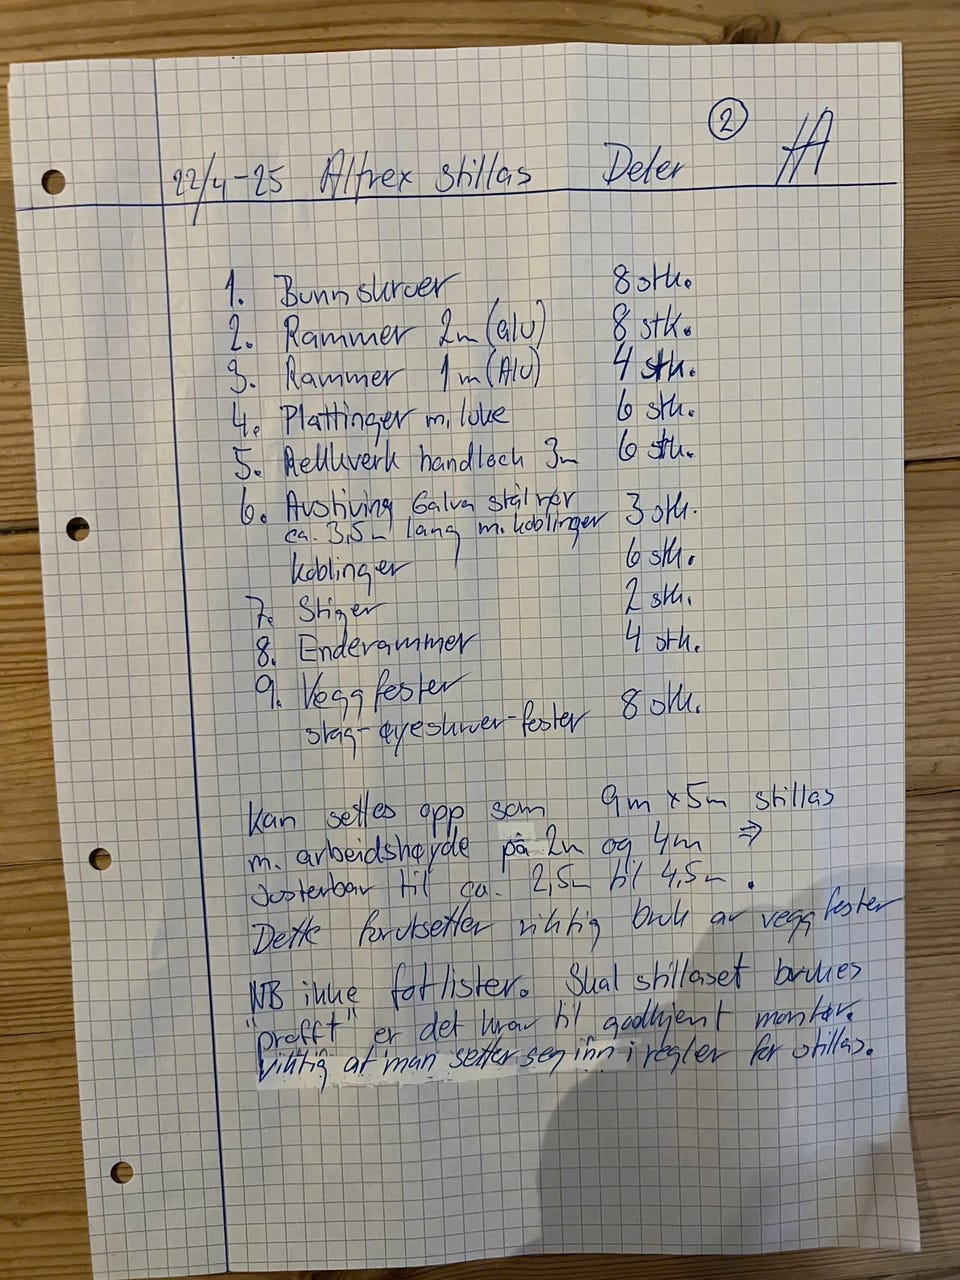 2
22/4-25 Altrex stillas Deler
1. Bunnskruer 8 stk.
2. Rammer 2m (alu) 8 stk.
3. Rammer 1m (Alu) 4 stk.
4. Plattinger m. luke 6 stk.
5. Rekkverk handloch 3m 6 stk.
6. Avstiving Galva stålrør
ca. 3,5m lang m. koblinger 3 stk.
koblinger 6 stk.
7. Stiger 2 stk.
8. Enderammer 4 stk.
9. Veggfester
stag-øyeskruer-fester 8 stk.
Kan settes opp som 9m x 5m stillas
m. arbeidshøyde på 2m og 4m ⇒
Justerbar til ca. 2,5m til 4,5m.
Dette forutsetter riktig bruk av veggfester
NB ikke fotlister. Skal stillaset brukes
"profft" er det krav til godkjent montør.
Viktig at man setter seg inn i regler for stillas.